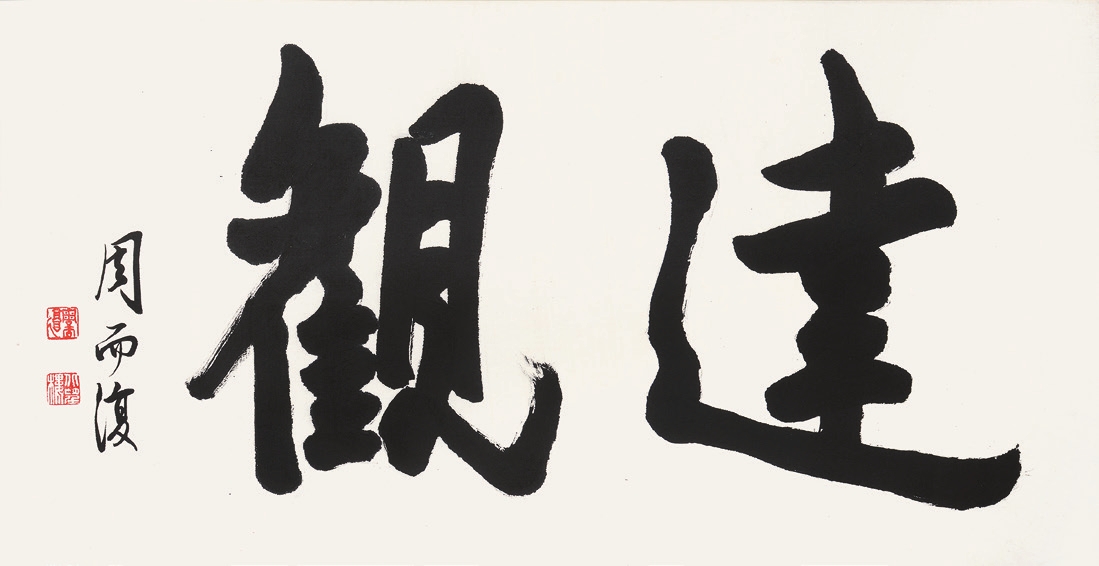 達觀
周而復